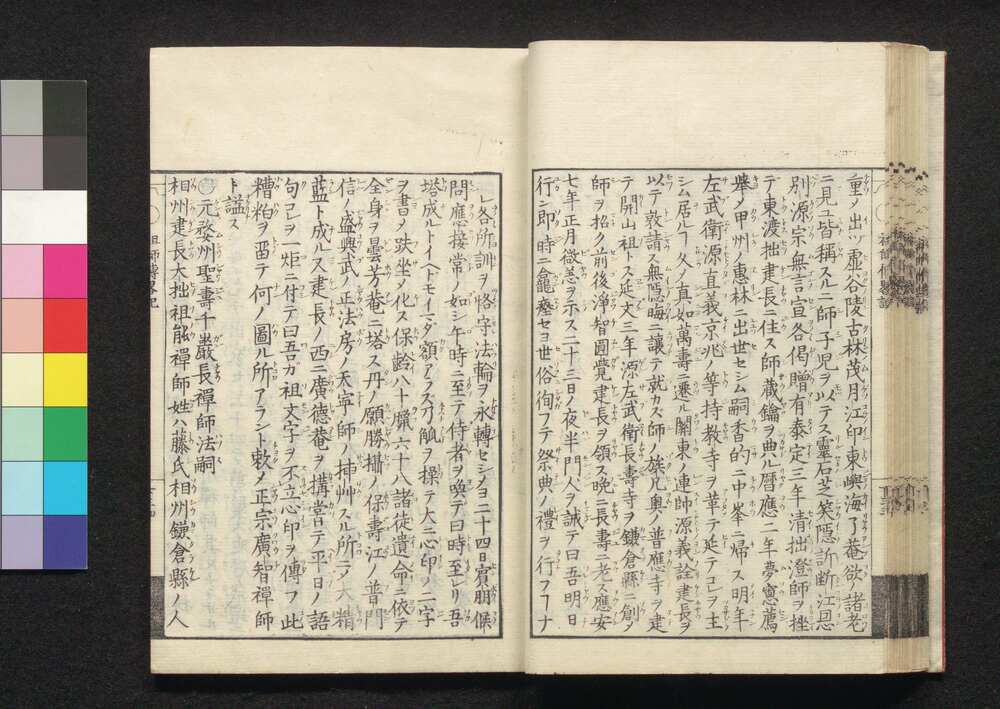 重ノ出ツ虎谷陵古林茂月江印東嶼海了菴欲諸老
ニ見ユ皆稱スルニ師子兒ヲ以テス靈石芝笑隱訢断江恩
別源宗無言宣各偈贈有泰定三年清拙澄師ヲ挫
テ東渡拙建長ニ住ス師藏鑰ヲ典ル曆應二年夢窓薦
擧ノ甲州ノ惠林ニ出世セシム嗣香的ニ中峯ニ歸ス明年
左武衛源直義京兆ノ等持教寺ヲ革テ延テコレヲ主
シム居ルヿ久ノ真如萬壽ニ遷ル關東ノ連帥源義詮建長ヲ
以テ敦請ス無隱晦ニ讓テ就カス師ノ族凡奧ノ普應寺ヲ建
テ開山祖トス延文三年源左武衛長壽寺ヲ鎌倉縣ニ創メ
師ヲ招ク前後淨智圓覺建長ヲ領ス晩ニ長壽ニ老ス應安
七年正月微恙ヲ示ス二十三日ノ夜半門人ヲ誡テ曰吾明日
行ン即時ニ龕瘞セヨ世俗徇フテ祭典ノ禮ヲ行フヿナ
レ各所訓ヲ恪守法輪ヲ永轉セシヨ二十四日賓朋候
問應接常ノ如シ午時ニ至テ侍者ヲ喚テ曰時至レリ吾
塔成ルトイヘトモイマタ額アラス乃觚ヲ操テ大ニ心印ノ二字
ヲ書ノ趺坐メ化ス保齡八十臘六十八諸徒遺命ニ依テ
全身ヲ曇芳菴ニ塔ス丹ノ願勝攝ノ保壽江ノ普門
信ノ盛興武ノ正法房ノ天寧師ノ揷艸スル所ニメ大精
藍ト成ル又建長ノ西ニ廣德菴ヲ構嘗テ平日ノ語
句コレヲ一炬ニ付テ曰吾カ祖文字ヲ不立心印ヲ傳フ此
糟粕ヲ畱テ何ノ圖ル所アラント敕メ正宗廣智禪師
ト謚ス
元婺州聖壽千巖長禪師法嗣
相州建長大拙祖能禪師姓ハ藤氏相州鎌倉縣ノ人